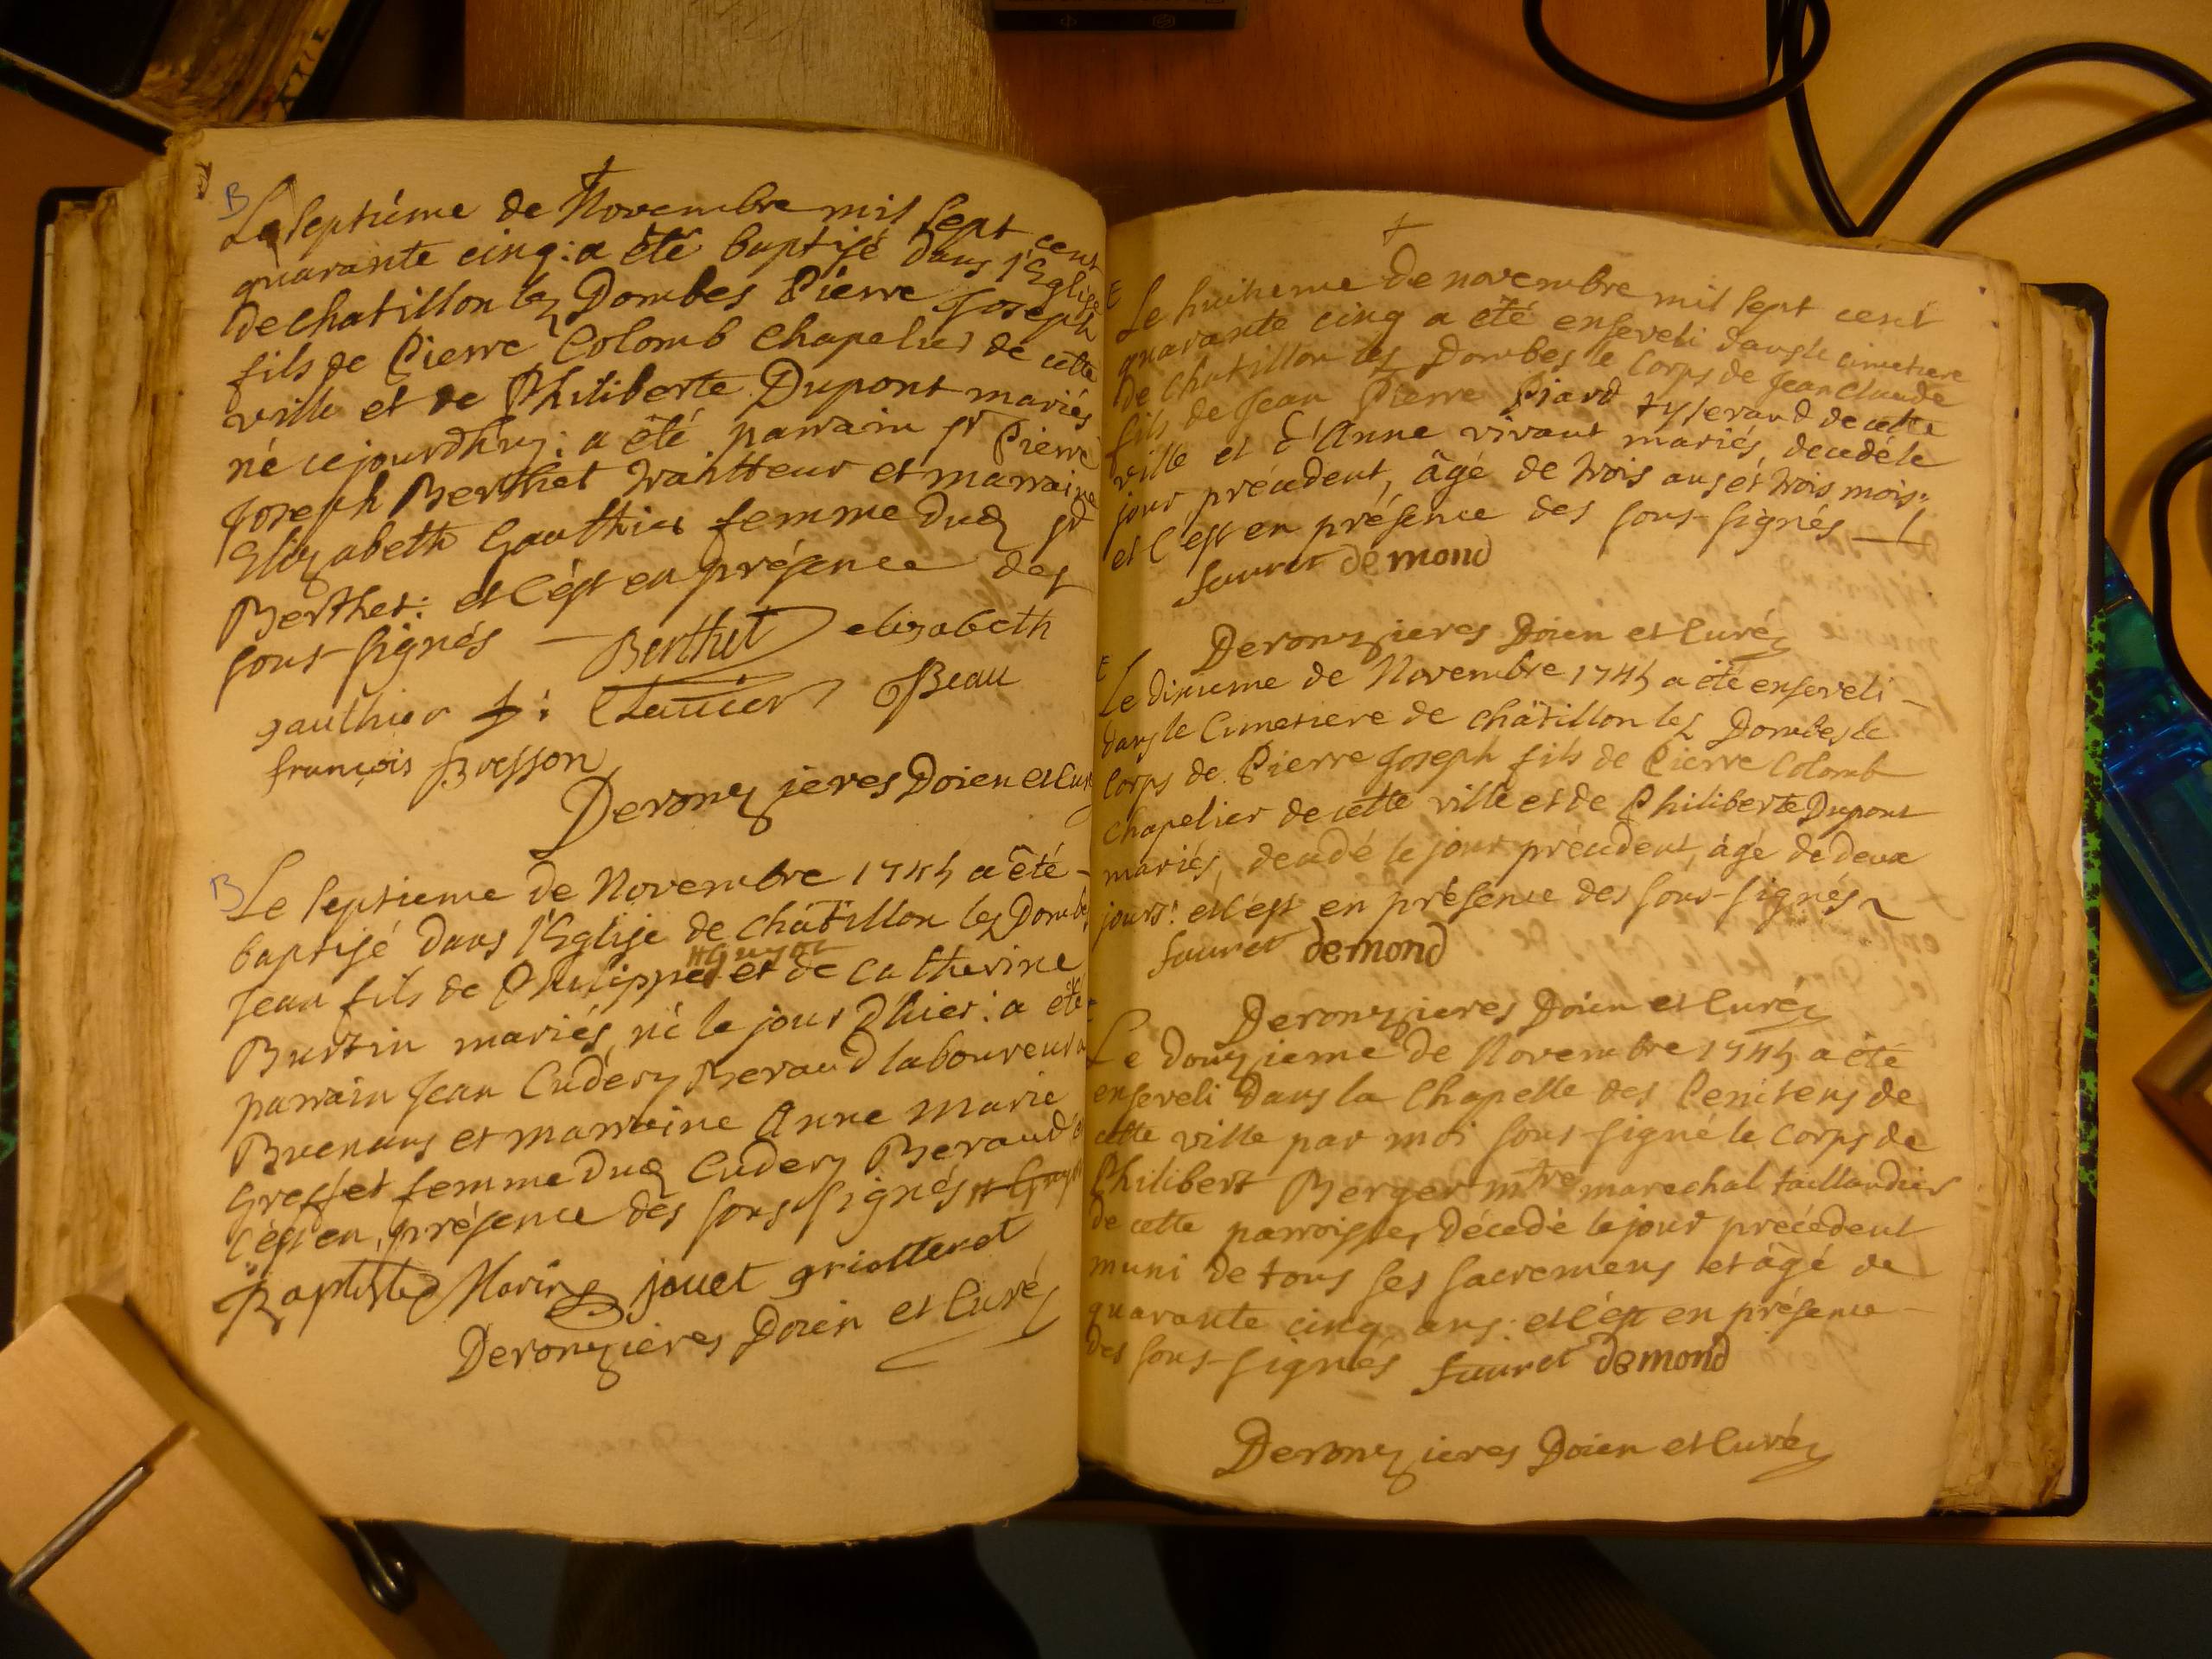 B
Le septiéme de Novembre mil sept cent
quarante cinq: a été baptisé dans l'Eglise
de chatillon lez Dombes Pierre Joseph
fils de Pierre Colomb chapelier de cette
ville et de Philiberte Dupont mariés
né cejourdhuy: a été parrain sr Pierre
Joseph Berthet traitteur et marraine
Elizabeth Gauthier femme dud sr
Berthet: et c'est en présence des
sous-signés — Berthet elizabeth
gauthier Beau
françois Bresson
Deronzieres Doien et Curé
B
Le septieme de Novembre 1745 a été
baptisé dans l'Eglise de châtillon lez Dombes
Jean fils de Philippe Guyot et de Catherine
Burtin mariés, né le jour d'hier: a été
parrain Jean Cudery Beraud laboureur a
Buenans et marraine Anne Marie
Greffet femme dud Cudery Beraud et
c'est en présence des sous signés
Baptiste Morin jouet griotteret
Deronzieres Doien et Curé
E
Le huitieme de novembre mil sept cent
quarante cinq a été enseveli dans le cimetiere
de chatillon lez Dombes le corps de Jean Claude
fils de Jean Pierre Piard tysserand de cette
ville et d'Anne vivant mariés, decedé le
jour précedent, âgé de trois ans et trois mois:
et c'est en présence des sous-signés
fauret demond
Deronzieres Doien et Curé
E
Le dixieme de Novembre 1745 a été enseveli
dans le Cimetiere de châtillon lez Dombes le
corps de Pierre Joseph fils de Pierre Colomb
chapelier de cette ville et de Philiberte Dupont
mariés, decedé le jour précedent, âgé de deux
jours: et c'est en présence des sous-signés
fauret demond
Deronzieres Doien et Curé
Le douzieme de Novembre 1745 a été
enseveli dans la Chapelle des Penitens de
cette ville par moi sous-signé le corps de
Philibert Berger mtre marechal taillandier
de cette parroisse, décedé le jour précedent
muni de tous ses sacremens et âgé de
quarante cinq ans: et c'est en présence
des sous-signés fauret demond
Deronzieres Doien et Curé